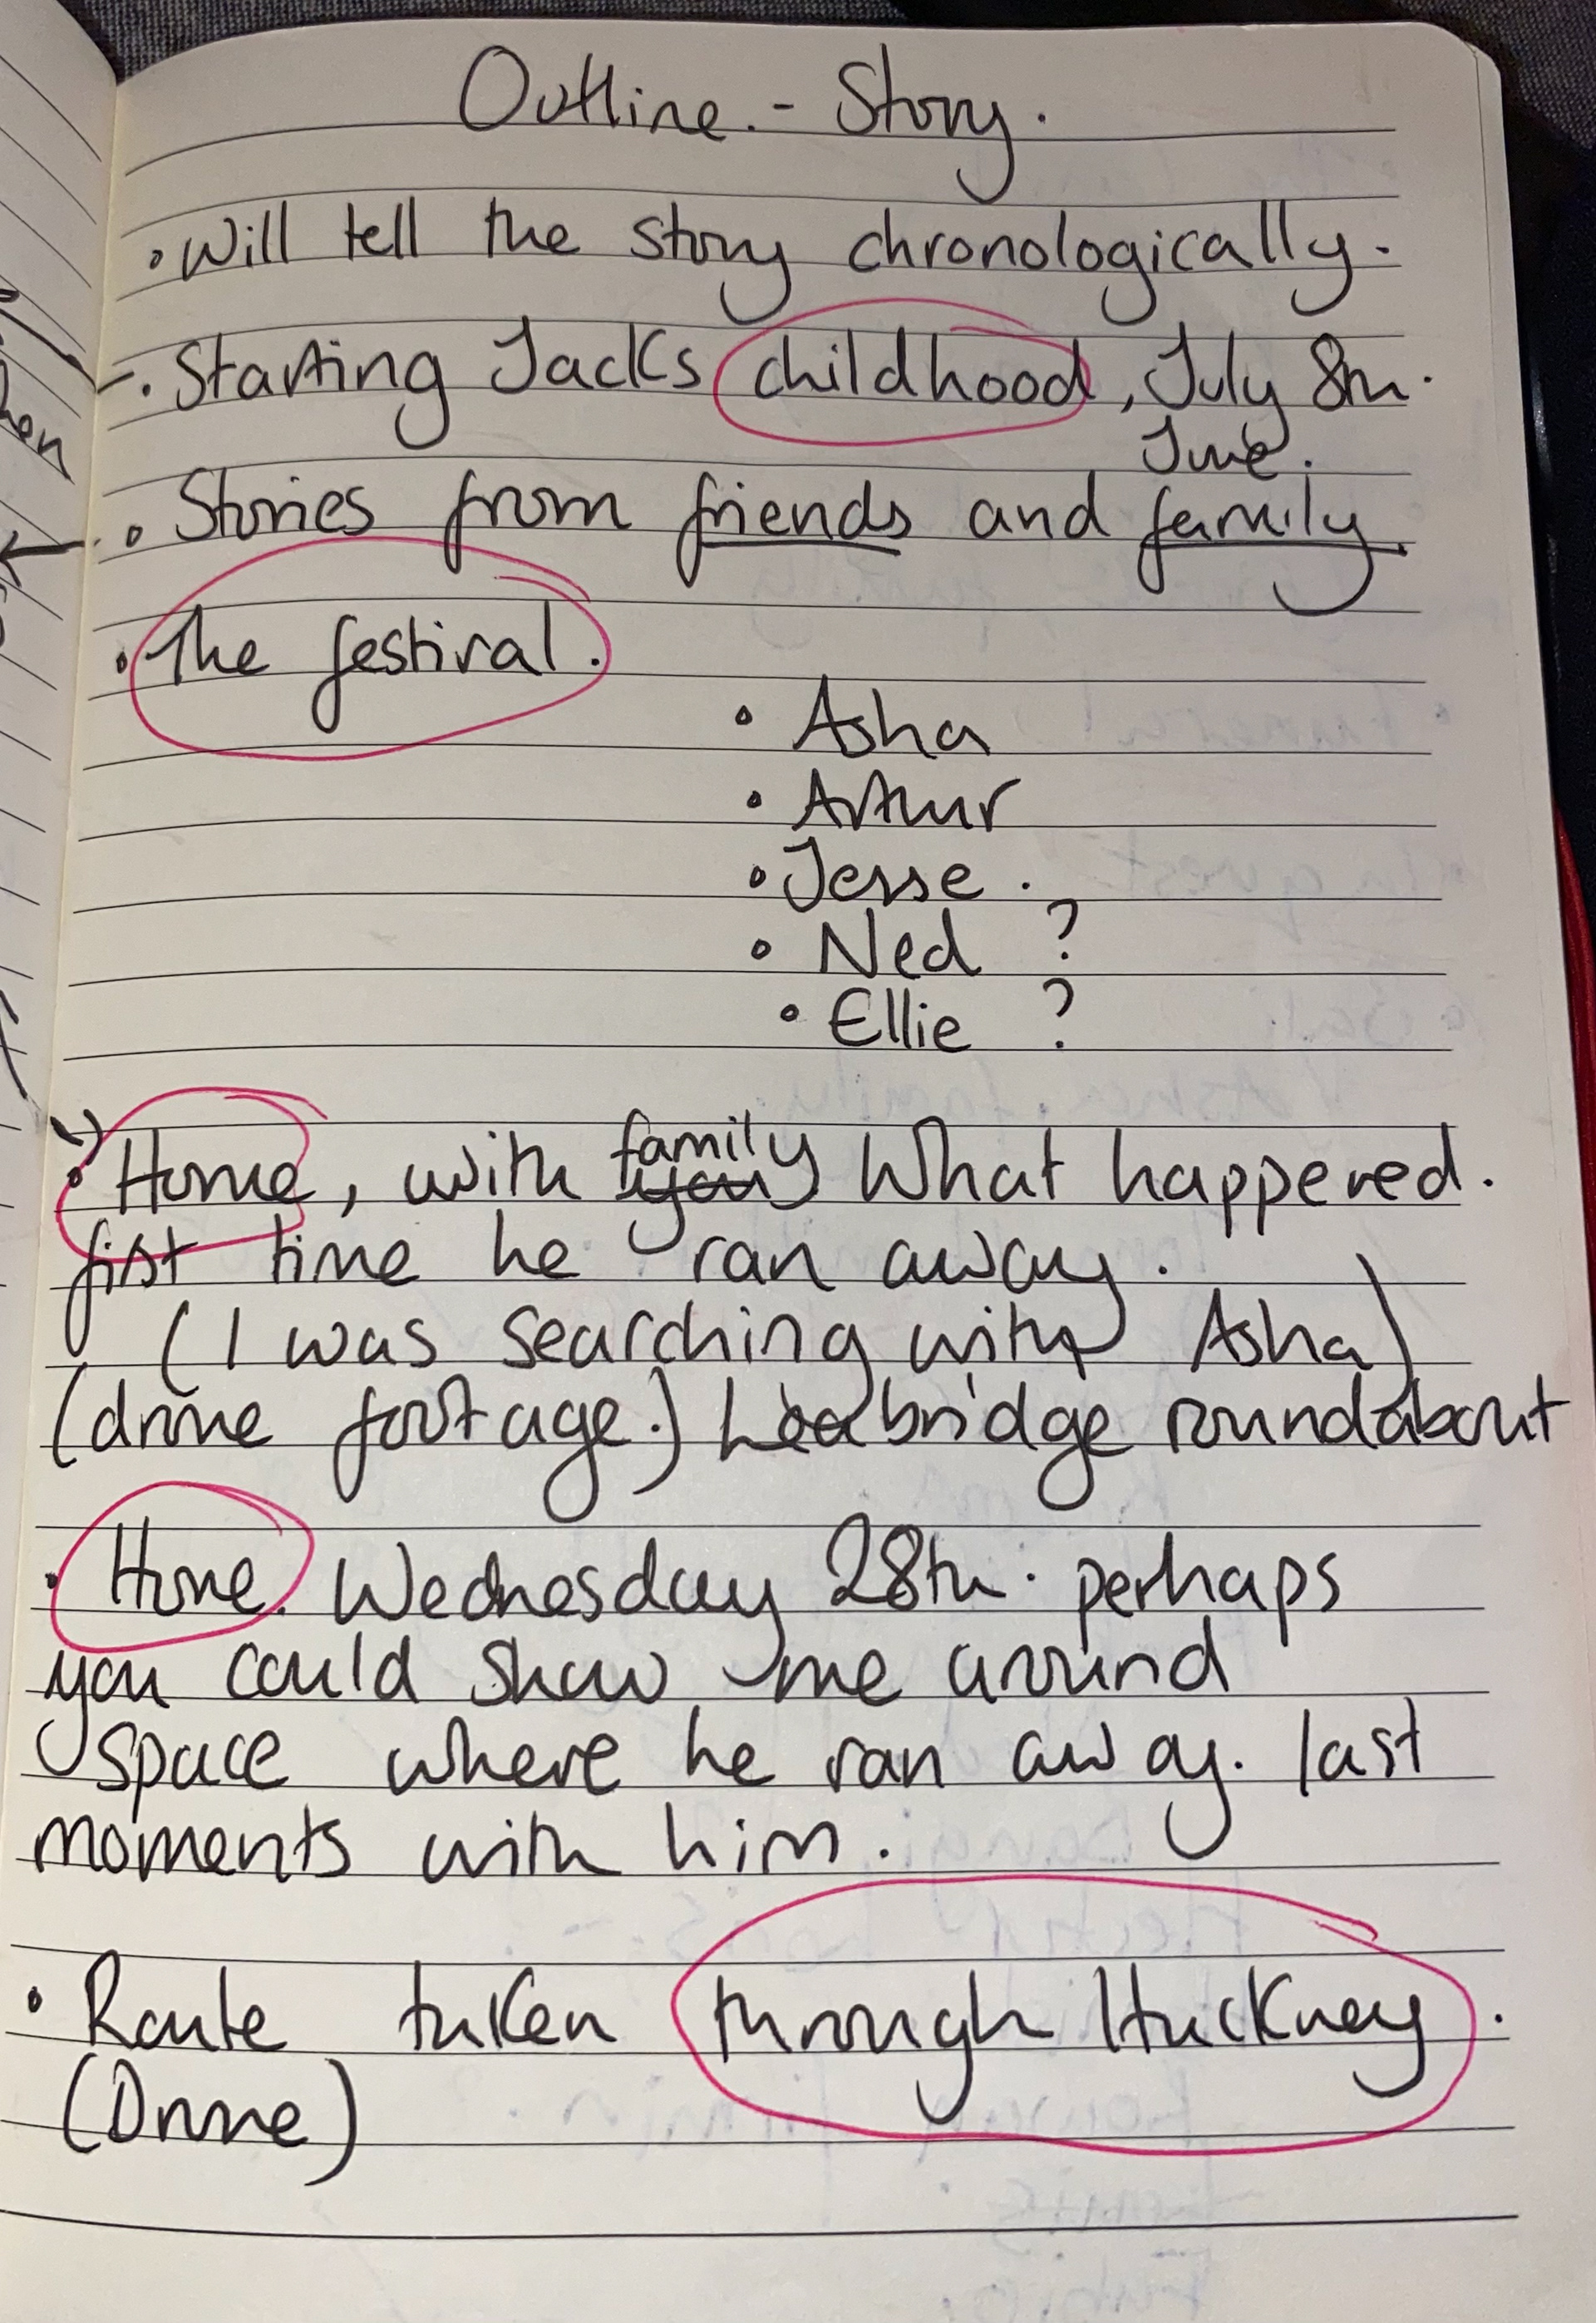 Outline. - Story.
• Will tell the story chronologically.
• Starting Jacks childhood, July 8th.
June.
• Stories from friends and family.
• The festival.
• Asha
• Arthur
• Jesse.
• Ned ?
• Ellie ?
family
• Home, with you What happened.
first time he ran away.
(I was searching with Asha)
(drone footage.) Leabridge roundabout
• Home. Wednesday 28th. perhaps
you could show me around
space where he ran away. last
moments with him.
• Route taken through Hackney.
(Drone)